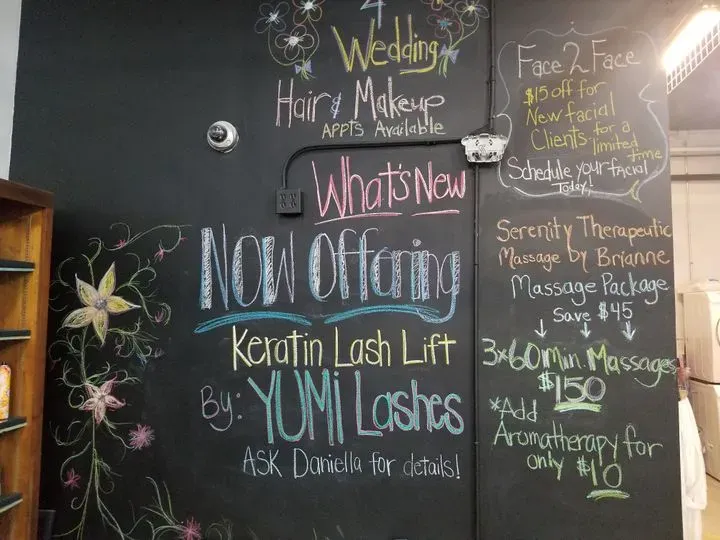 4
Wedding
Hair & Makeup
APPTS Available
What's New
NOW Offering
Keratin Lash Lift
By: YUMi Lashes
ASK Daniella for details!
Face 2 Face
$15 off for
New facial
Clients for a
limited time
Schedule your facial
Today!
Serenity Therapeutic
Massage by Brianne
Massage Package
Save $45
3x60 Min. Massages
$150
*Add
Aromatherapy for
only $10